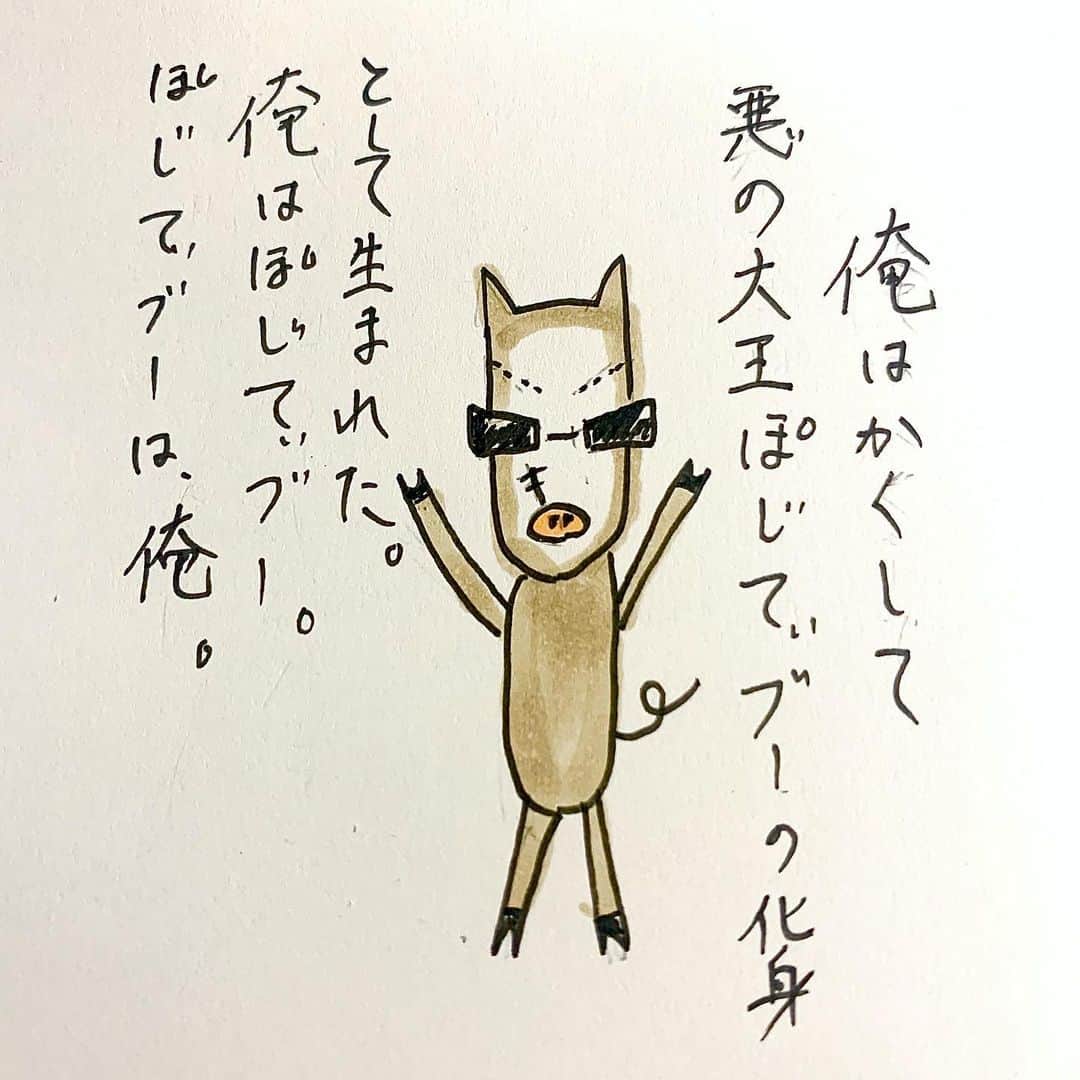 俺はかくして
悪の大王ぽじてぃブーの化身
として生まれた。
俺はぽじてぃブー。
ぽじてぃブーは、俺。